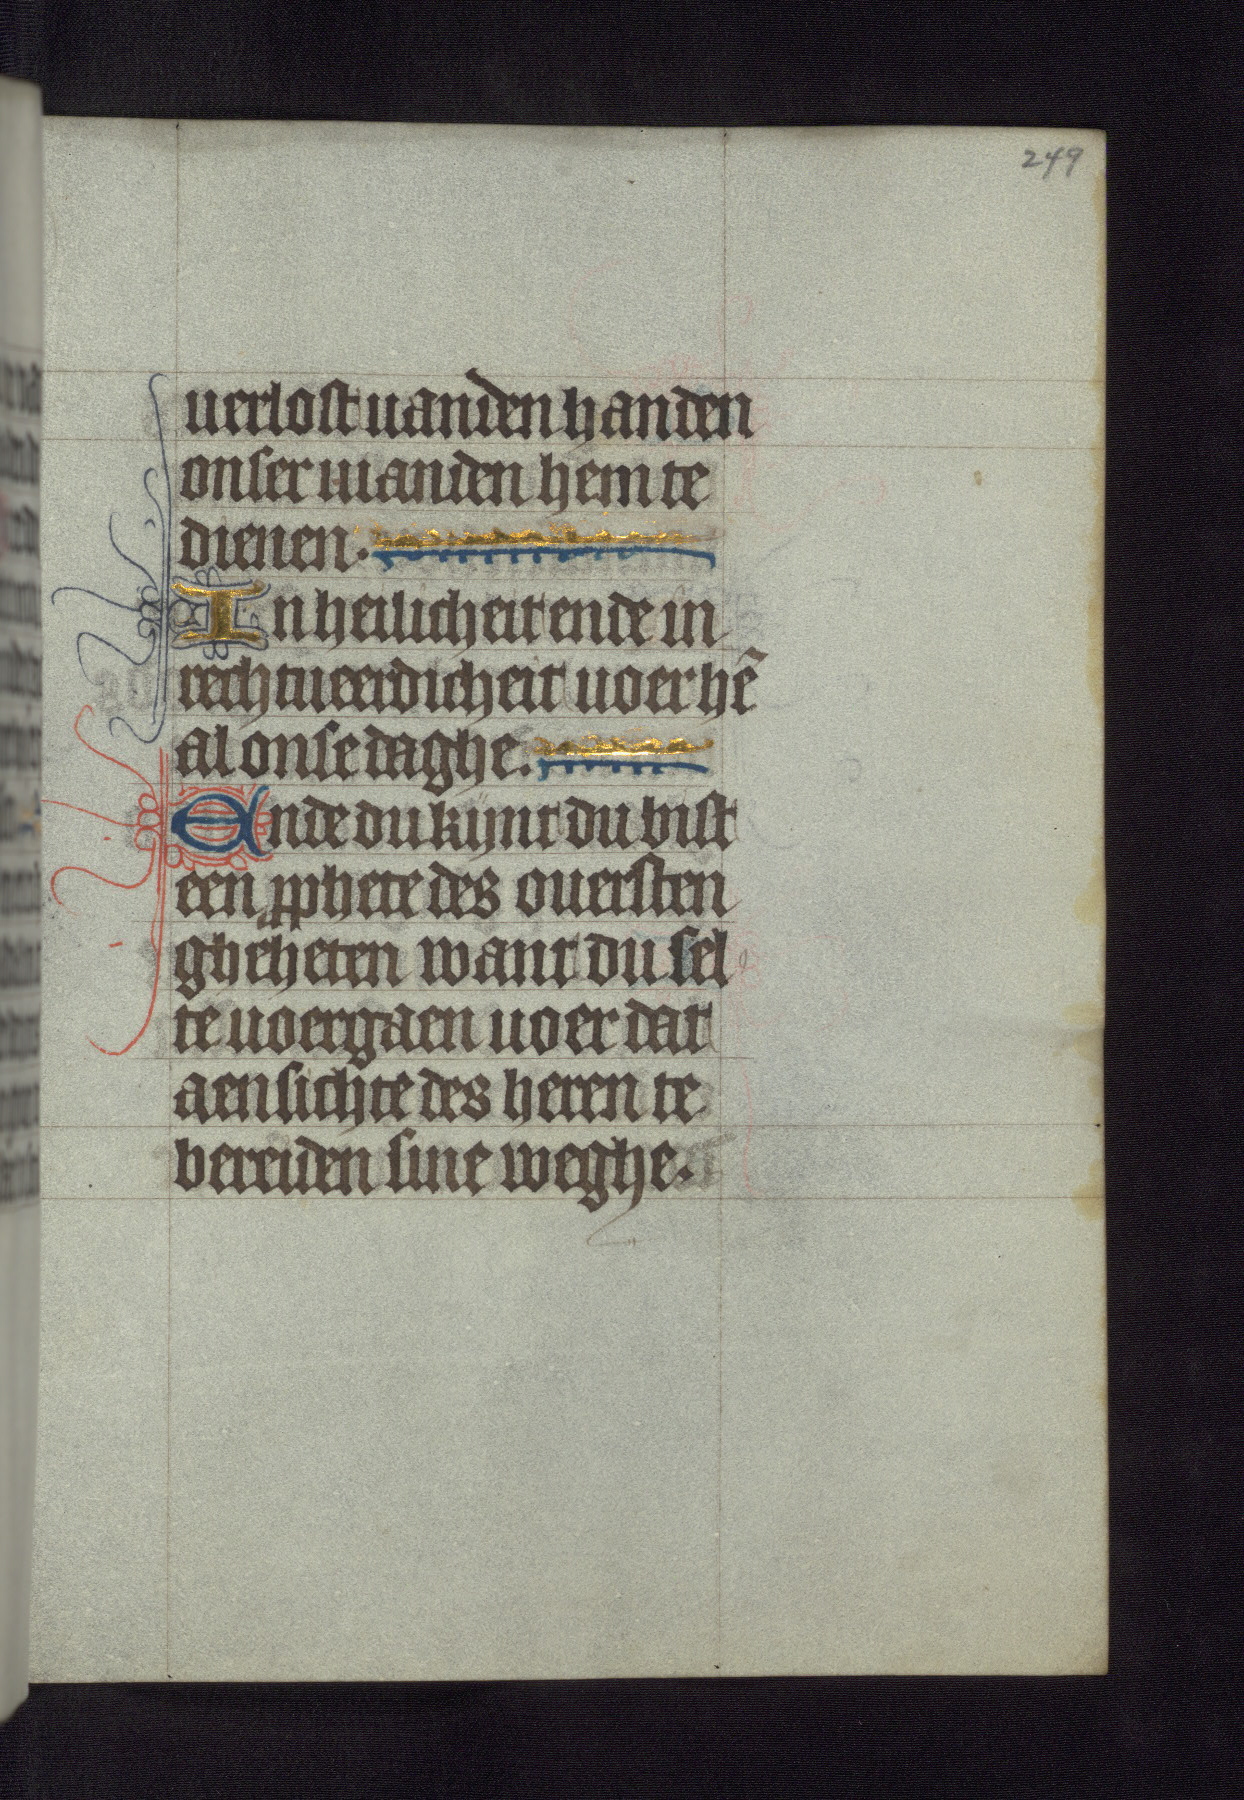 249
uerlost uanden handen
onser uianden hem te
dienen.
In heilicheit ende in
rechtueerdicheit uoer hē
al onse daghe.
Ende du kijnt du bist
een ꝓphete des ouersten
gheheten want du sel
te uoergaen uoer dat
aensichte des heren te
bereiden sine weghe.